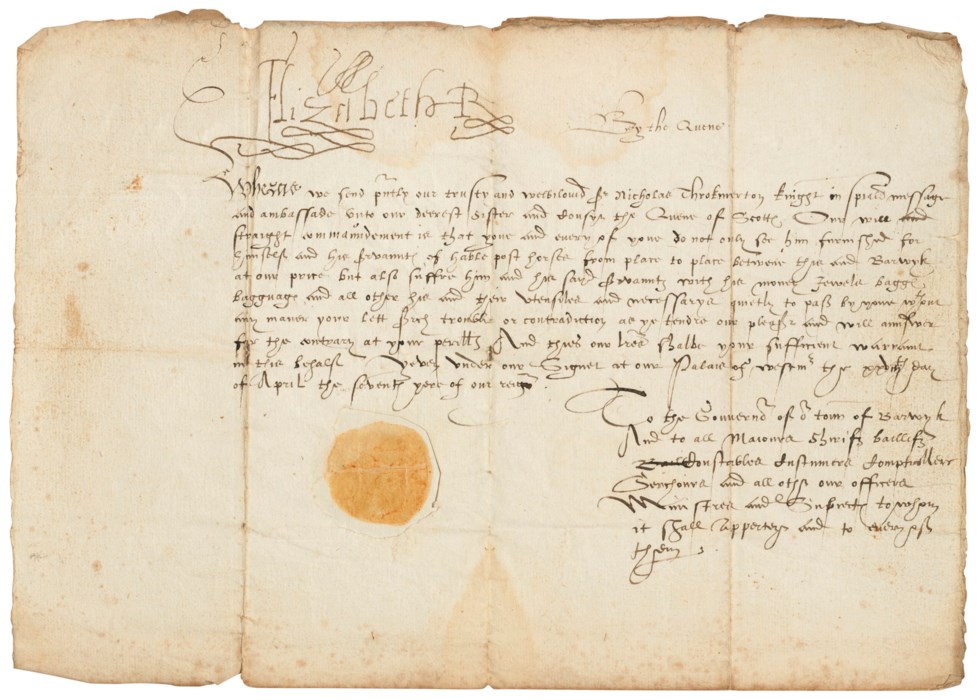 Elizabeth R
By the Quene
Wheras we send pntly our trusty and welbiloud Sr Nicholas Throkmerton Knight in spiall message
and ambassade unto our deerest Sister and Cousyn the Quene of Scotts Our will and
straight commaundement is that youe and every of youe do not only see him furnished for
himself and his servaunts of hable post horses from place to place betwene this and Barwyk
at our price but also suffre him and his sayd servaunts with his money Jewels baggs
bagguage and all other his and their utensiles and necessarys quietly to pass by youe wtout
any maner your lett serch trouble or contradiction as ye tendre our pleasr and will aunswer
for the contrary at your perills And thies our lres shalbe your sufficient warraunt
in this behalf Yeven under our Signet at our Palais of Westmr the day
of April the seventh yere of our reign
To the Gouvernor of or town of Barwyk
And to all Maiours Shrifs bailiefs
Constables Custumers Comptrollers
Serchours and all other our officers
Ministres and Subiects to whom
it shall apperteyn and to every of
them